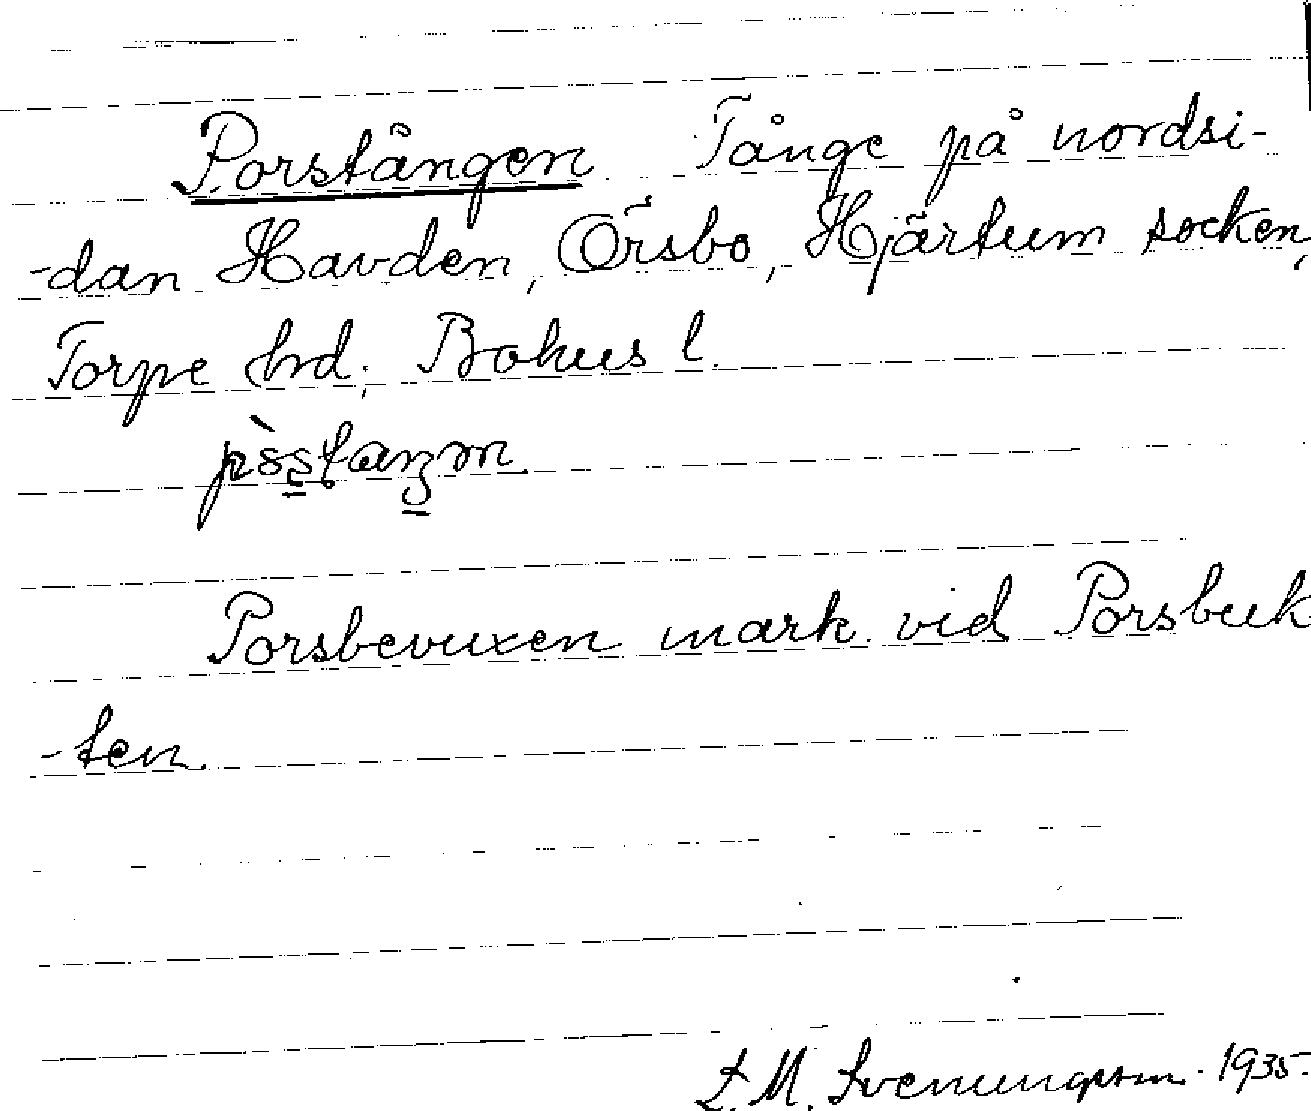 Porstången Tånge på nordsi-
-dan Havden, Örsbo, Hjärtum socken,
Torpe hrd; Bohus l.
Porsbevuxen mark vid Porsbuk
-ten.
L. M. Svenungsson 1935.